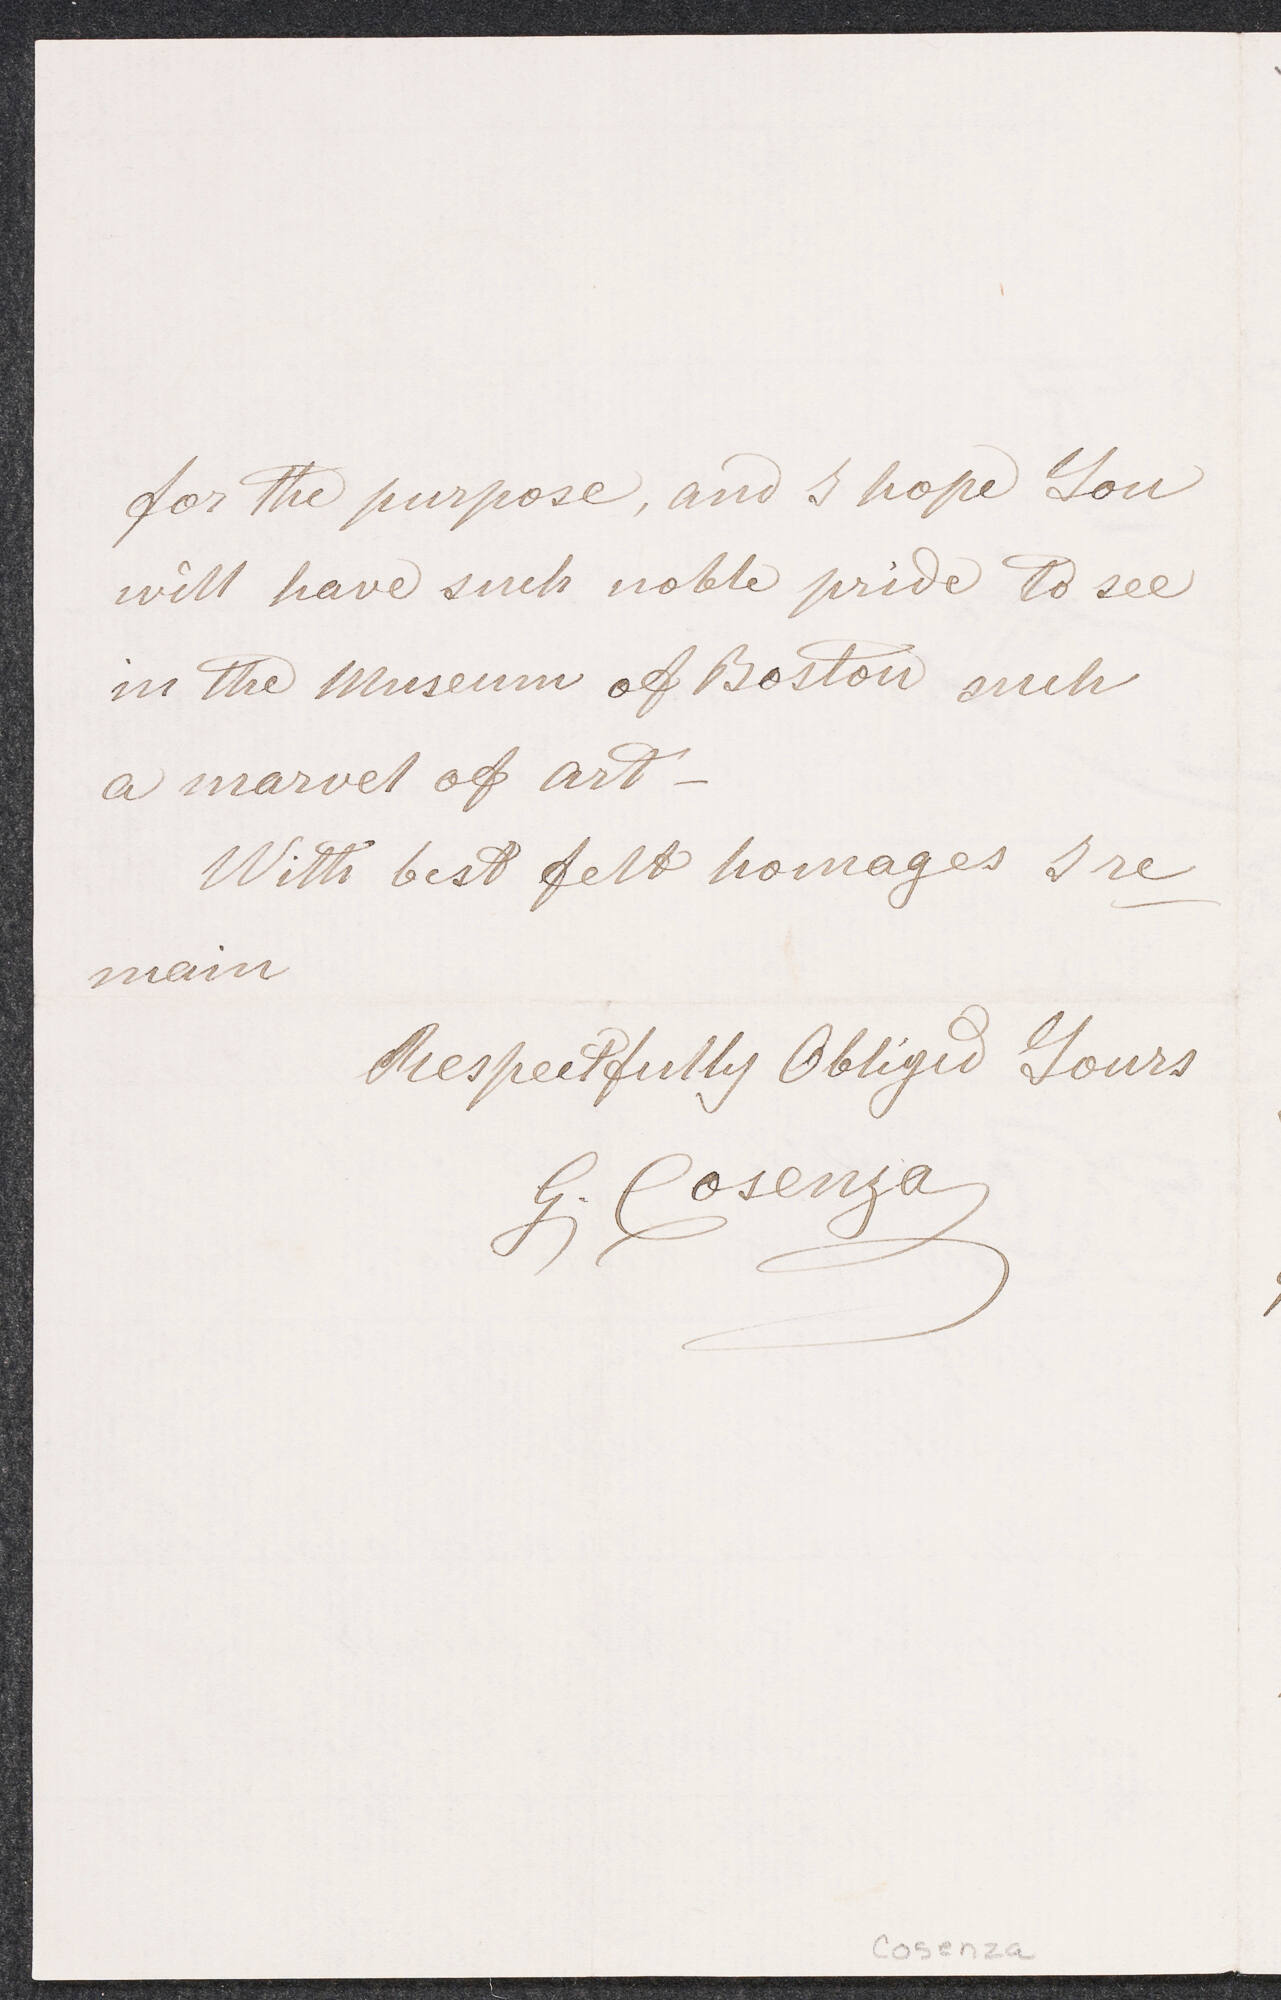 for the purpose, and I hope You
will have such noble pride to see
in the Museum of Boston such
a marvel of art –
With best felt homages I re
main
Respectfully Obliged Yours
G. Cosenza
Cosenza